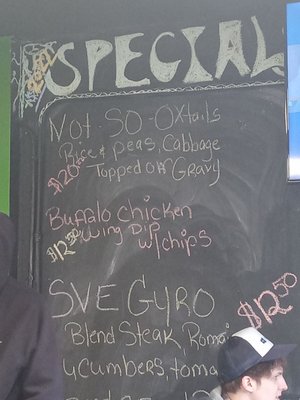 SPECIAL
Not-SO-Oxtails
Rice & peas, Cabbage
$20.00
Topped on Gravy
Buffalo Chicken
Wing Dip
$12.50
w/chips
SVE Gyro
$12.50
Blend Steak, Roma
ucumbers, toma